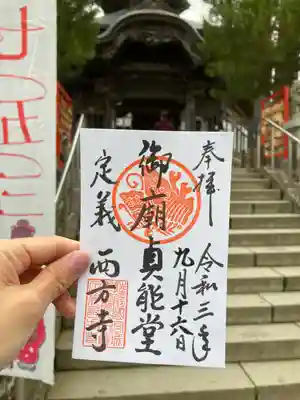 奉拝
令和三年
九月十六日
御廟貞能堂
定義
西方寺